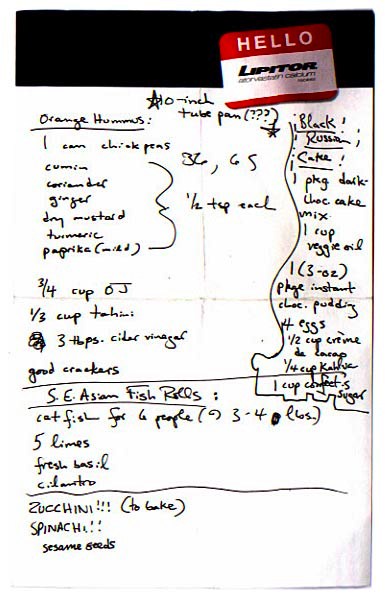 HELLO
LIPITOR
atorvastatin calcium
tablets
10-inch
tube pan (???)
Orange Hummus:
1 can chickpeas
cumin
coriander
ginger
dry mustard
turmeric
paprika (mild)
1/2 tsp each
3/4 cup OJ
1/3 cup tahini
3 tbps. cider vinegar
good crackers
¡Black!
¡Russian!
¡Cake!
1 pkg. dark-
choc. cake
mix.
1 cup
veggie oil
1 (3-oz)
pkge instant
choc. pudding
4 eggs
1/2 cup crème
de cacao
1/4 cup Kahlua
1 cup confect's
sugar
S.E. Asian Fish Rolls:
catfish for 6 people (@ 3-4 lbs.)
5 limes
fresh basil
cilantro
ZUCCHINI!!! (to bake)
SPINACH!!
sesame seeds